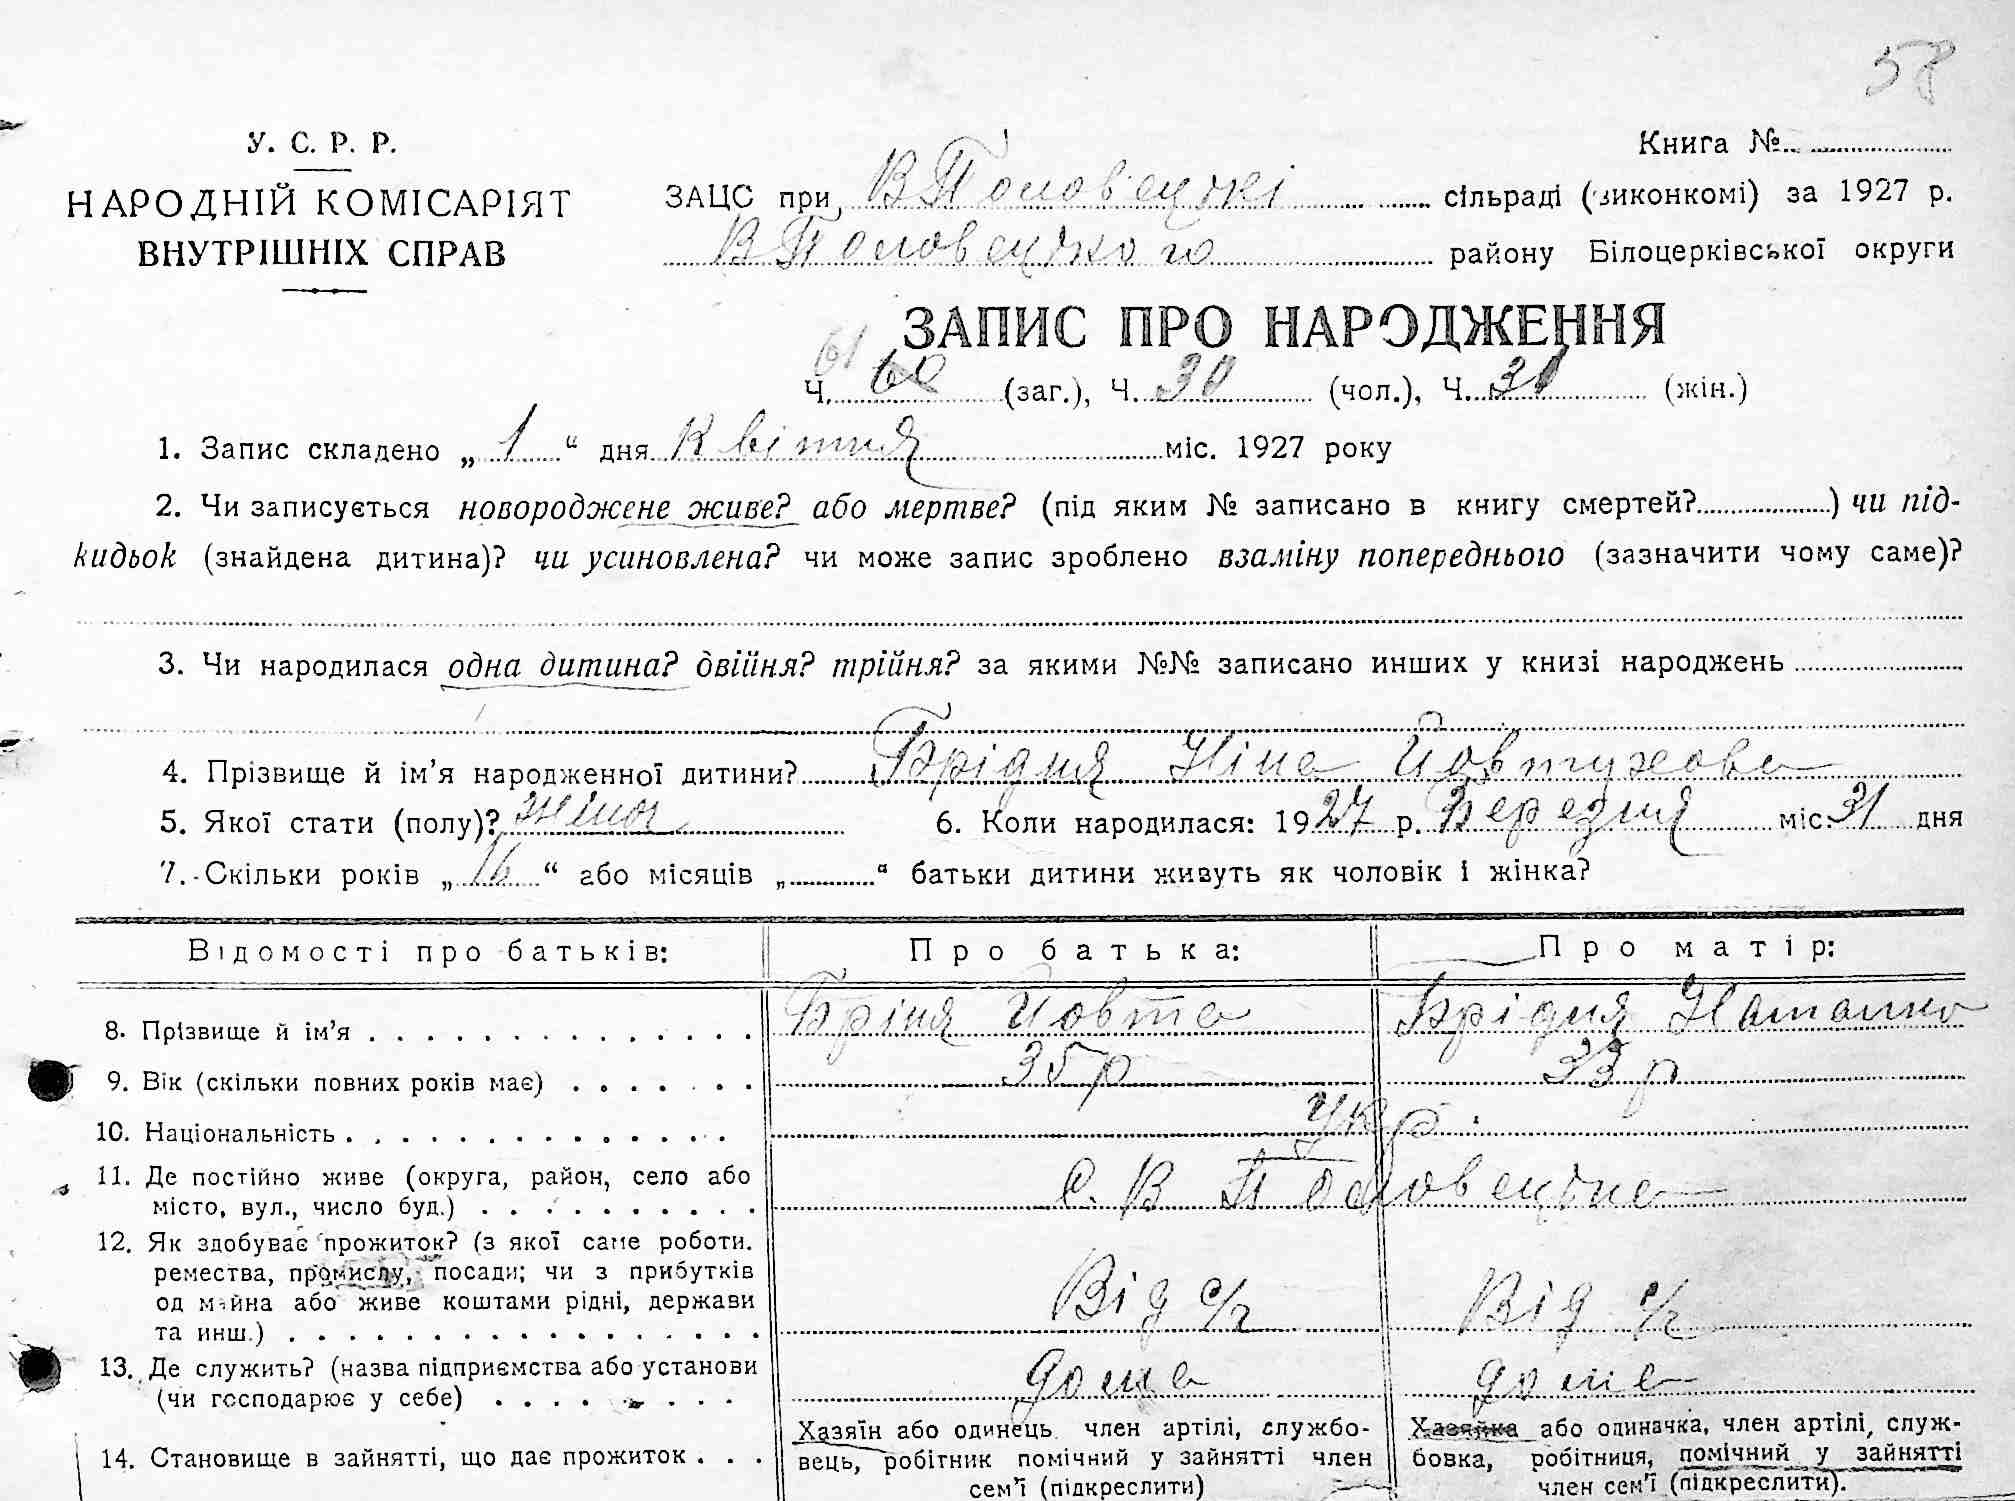 58
У. С. Р. Р.
Книга №
НАРОДНІЙ КОМІСАРІЯТ
ВНУТРІШНІХ СПРАВ
ЗАЦС при В Половецькі сільраді (виконкомі) за 1927 р.
В Половецького району Білоцерківської округи
ЗАПИС ПРО НАРОДЖЕННЯ
61
Ч. 60 (заг.), Ч. 30 (чол.), Ч. 31 (жін.)
1. Запис складено „ 1 “ дня Квітня міс. 1927 року
2. Чи записується новороджене живе? або мертве? (під яким № записано в книгу смертей?) чи під-
кидьок (знайдена дитина)? чи усиновлена? чи може запис зроблено взаміну попереднього (зазначити чому саме)?
3. Чи народилася одна дитина? двійня? трійня? за якими №№ записано инших у книзі народжень
4. Прізвище й ім'я народженної дитини? Брідня Ніна Йовтухова
5. Якої стати (полу)? жіноч 6. Коли народилася: 1927 р. Березня міс. 31 дня
7. Скільки років „ 16 “ або місяців „ “ батьки дитини живуть як чоловік і жінка?
Відомості про батьків: Про батька: Про матір:
8. Прізвище й ім'я Бріня Йовта Брідня Наталка
9. Вік (скільки повних років має) 35 р 33 р
10. Національність Укр.
11. Де постійно живе (округа, район, село або
місто, вул., число буд.) с. В Половецьке
12. Як здобуває прожиток? (з якої саме роботи.
ремества, промислу, посади; чи з прибутків
од майна або живе коштами рідні, держави
та инш.) Від с/г Від с/г
13. Де служить? (назва підприємства або установи
(чи господарює у себе) дома дома
14. Становище в зайнятті, що дає прожиток
Хазяїн або одинець, член артілі, службо-
вець, робітник помічний у зайнятті член
сем'ї (підкреслити)
Хазяйка або одиначка, член артілі, служ-
бовка, робітниця, помічний у зайнятті
член сем'ї (підкреслити).